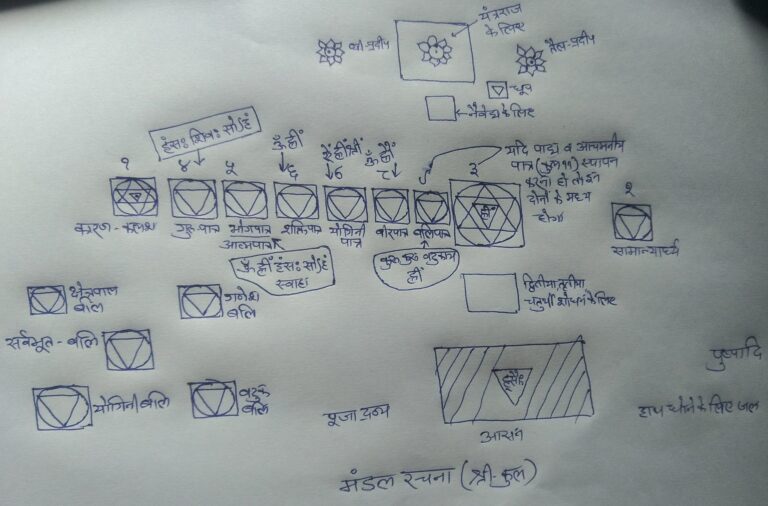 यंत्रराज
के लिए
घी-प्रदीप
तैल-प्रदीप
धूप
नैवेद्य के लिए
हंसः शिवः सोऽहं
ॐ ह्रीं
ऐं ह्रीं श्रीं
ॐ ह्रौं
यदि पाद्य व आचमनीय
पात्र (कुल ११) स्थापन
करना हो तो इन
दोनों के मध्य
होगा
१
४
५
६
७
८
९
३
२
कारण-कलश
गुरु पात्र
भोगपात्र
आत्मपात्र
शक्तिपात्र
योगिनी
पात्र
वीरपात्र
बलिपात्र
सामान्यार्घ्य
ॐ ह्रीं हंसः सोऽहं
स्वाहा
ह्रीं
क्षेत्रपाल
बलि
गणेश
बलि
द्वितीया, तृतीया
चतुर्थी शोधन के लिए
सर्वभूत-बलि
योगिनी बलि
वटुक
बलि
हंसः
पुष्पादि
पूजा द्रव्य
आसन
हाथ धोने के लिए जल
मंडल रचना (श्री-कुल)